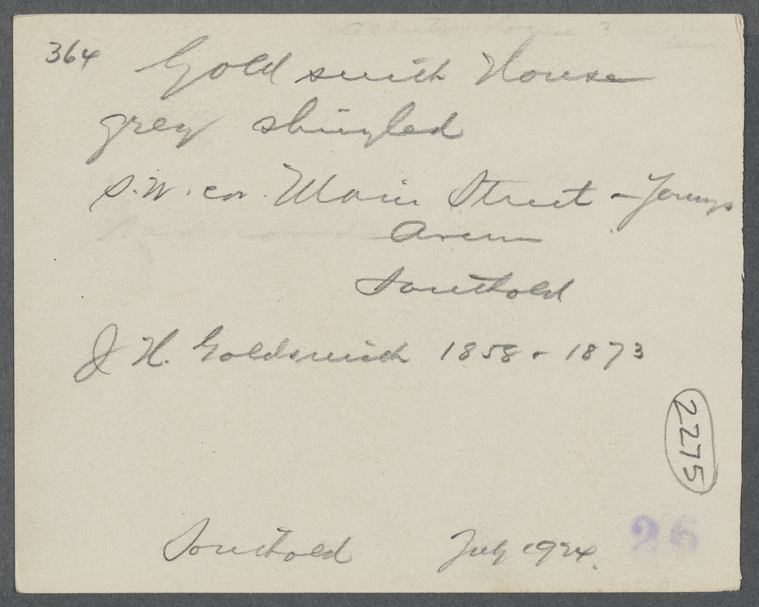 364 Goldsmith House
grey shingled
S.W. cor. Main Street - Youngs
Avenue
Southold
J H. Goldsmith 1858 - 1873
2275
Southold July 1924.
26